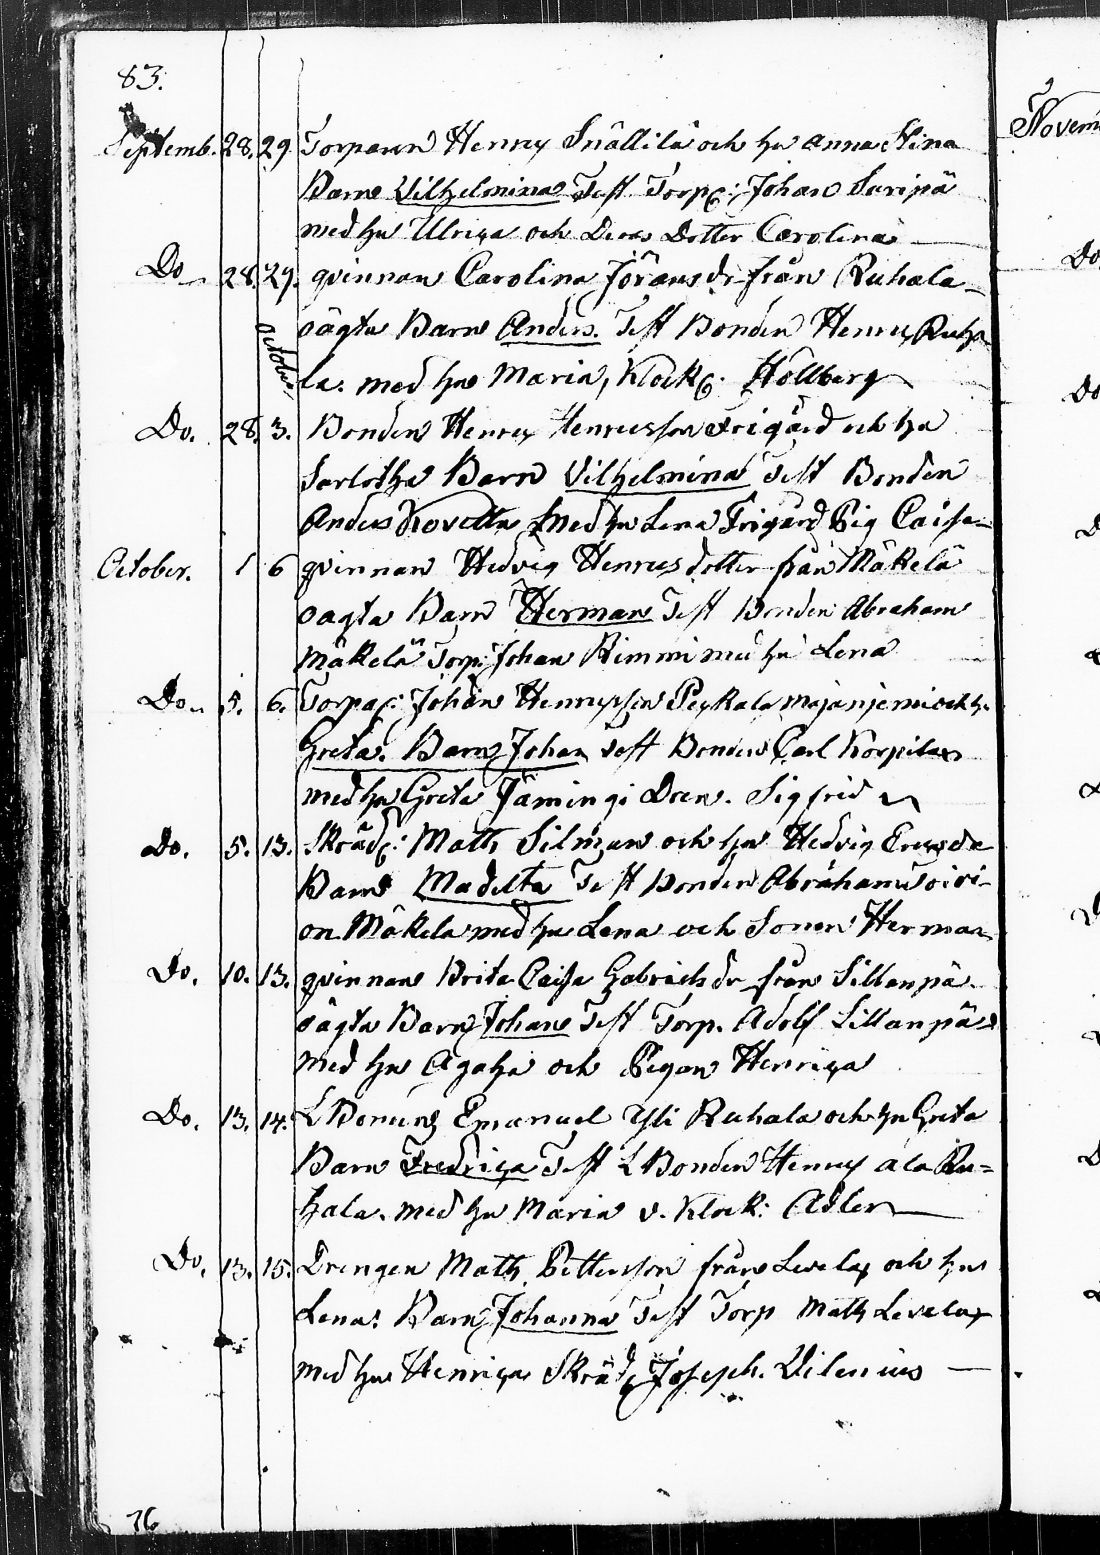 83.
Septemb. 28. 29. Torparen Henric Snällilä och hu Anna Stina
Barn Vilhelmina Test Torp: Johan Suripä
med hu Ulrica och Deras Dotter Carolina
Do 28. 29. qvinnan Carolina Jöransdr från Ruhala
oägta Barn Anders. Test Bonden Henric Ruha
October la. med hu Maria, Klock. Hollberg
Do. 28. 3. Bonden Henric Henricsson Frigård och hu
Sarlotha Barn Vilhelmina Test Bonden
Anders Kovelta med hu Lena Frigård Pig Caisa
October. 1 6 qvinnan Hedvig Henricsdotter från Mäkelä
oagta Barn Herman Test Bonden Abraham
Mäkelä Torp: Johan Rimmi med hu Lena
Do 5. 6. Torpa: Johan Henricsson Peykala Majanjemi och h.
Greta. Barn Johan Test Bonden Carl Korpila
med hu Greta Jämingi Dren. Sigfrid
Do. 5. 13. Skräd: Math Silman och hu Hedvig Ericsdr
Barn Madelta Test Bonden Abraham Toivi-
on Mäkela med hu Lena och Sonen Herman
Do. 10. 13. qvinnan Brita Caisa Gabrielsdr från Sillanpä
oägta Barn Johan Test Torp. Adolf Sillanpä
med hu Agaha och Pigan Henrica
Do. 13. 14. L Bonden Emanuel Yli Ruhala och hu Greta
Barn Fredrica Test L Bonden Henric ala Ru=
hala. med hu Maria v. Klock: Adler
Do. 13. 15. Drengen Math Pettersson från Levelax och hu
Lena: Barn Johanna Test Torp Math Levelax
med hu Henrica Skräd Joseph. Vilenius
76
Novem
Do.
Do